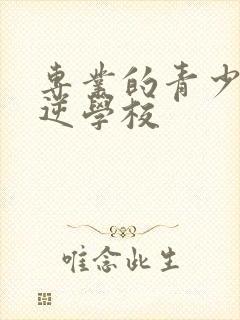 專業的青少
逆學校
唯念此生